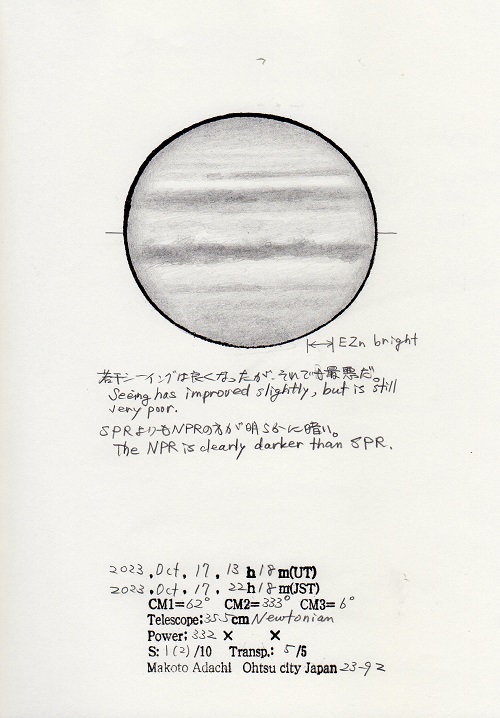 EZn bright
若干シーイングは良くなったが、それでも最悪だ。
Seeing has improved slightly, but is still
very poor.
SPRよりもNPRの方が明らかに暗い。
The NPR is clearly darker than SPR.
2023, Oct, 17, 13 h 18 m(UT)
2023, Oct, 17, 22 h 18 m(JST)
CM1=62° CM2=333° CM3=6°
Telescope; 35.5cm Newtonian
Power; 332 × ×
S: 1(2)/10 Transp.: 5/5
Makoto Adachi Ohtsu city Japan 23-92